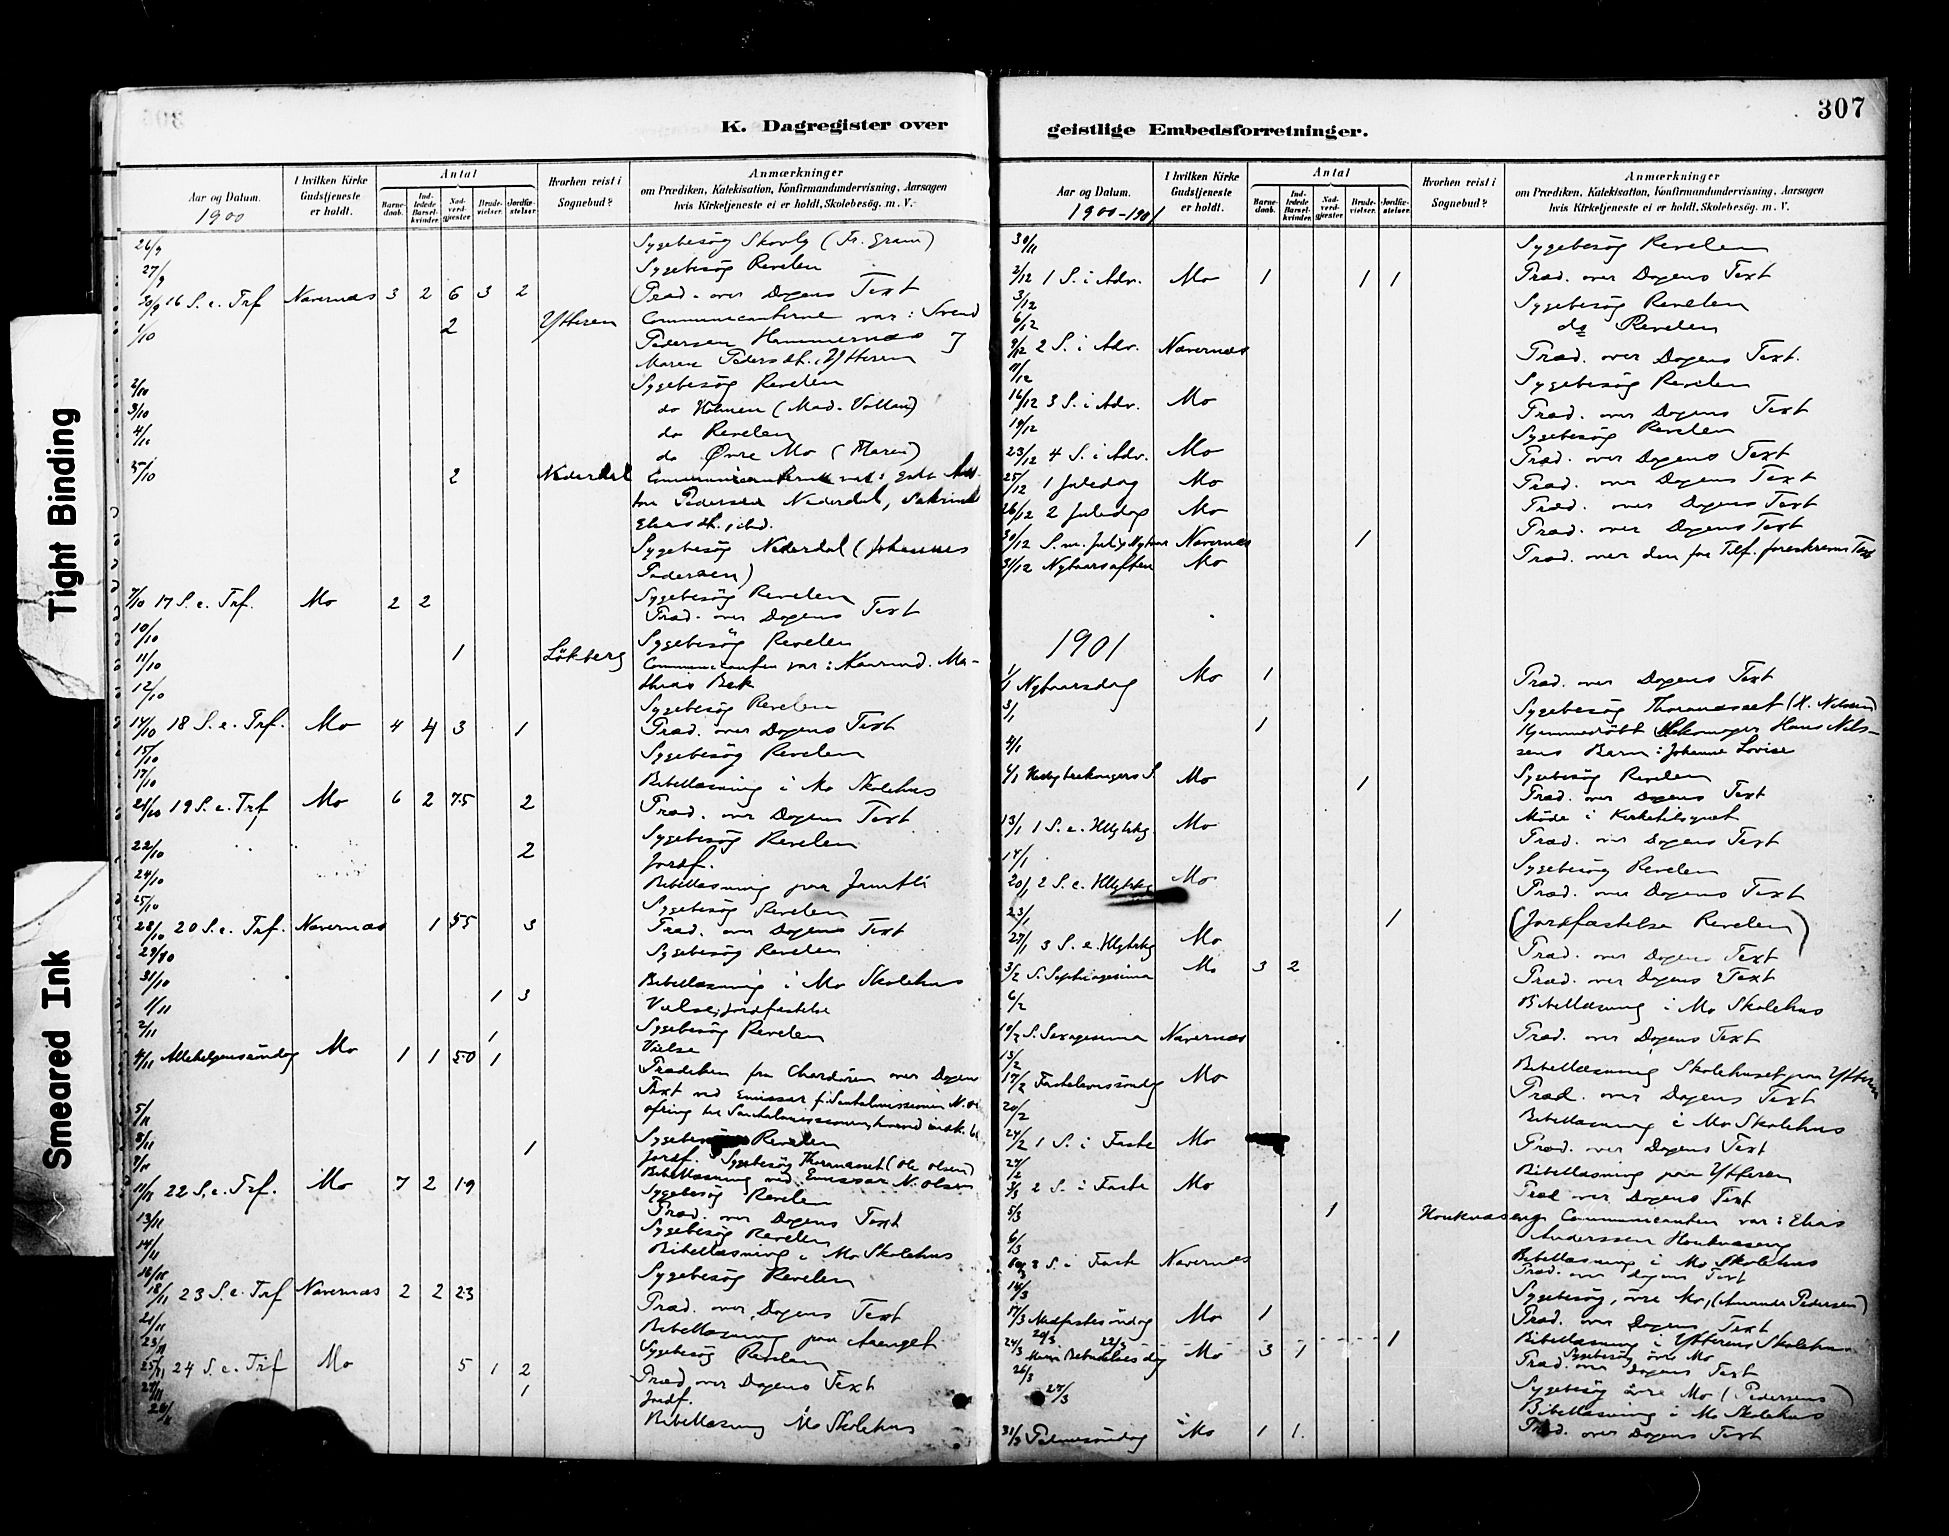 Tight Binding
Smeared Ink
K. Dagregister over
Aar og Datum.
1900
I hvilken Kirke Gudstjeneste er holdt.
Antal
Barnedaab.
Indledede Barselkvinder.
Nadverdgjester
Brudevielser.
Jordfæstelser.
Hvorhen reist i Sognebud?
Anmærkninger
om Prædiken, Katekisation, Konfirmandundervisning, Aarsagen
hvis Kirketjeneste ei er holdt, Skolebesög. m. V.
26/9 Sygebesøg Skovly (Fr. Gram)
27/9 Sygebesøg Revelen
30/9 16 S. e. Trf Nævernæs 3 2 6 3 2 Præd. over Dagens Text
1/10 2 Ytteren Communicanterne var: Svend
Pedersen Hammernæs og
Maren Pedersdt. Ytteren
2/10 Sygebesøg Revelen
3/10 do Holmen (Mad. Volland)
4/10 do Revelen
do Øvre Mo (Maren)
5/10 2 Nederdal Communicanterne var:
Pedersen Nederdal,
Eliasdt. ibid.
Sygebesøg Nederdal (Johannes
Pedersen)
Sygebesøg Revelen
7/10 17 S. e. Trf. Mo 2 2 Præd. over Dagens Text
10/10 Sygebesøg Revelen
11/10 1 Lökberg Communicanten var: Ma-
thias Bek
12/10 Sygebesøg Revelen
14/10 18 S. e. Trf. Mo 4 4 3 1 Præd. over Dagens Text
15/10 Sygebesøg Revelen
17/10 Bibellæsning i Mo Skolehus
21/10 19 S. e. Trf Mo 6 2 75 2 Præd. over Dagens Text
Sygebesøg Revelen
22/10 2 Jordf.
24/10 Bibellæsning paa Jamtli
25/10 Sygebesøg Revelen
28/10 20 S. e. Trf. Nævernæs 1 55 3 Præd. over Dagens Text
29/10 Sygebesøg Revelen
31/10 Bibellæsning i Mo Skolehus
1/11 1 3 Vielse, jordfæstelse
2/11 Sygebesøg Revelen
1 Vielse
4/11 Allehelgenssöndag Mo 1 1 50 1 Prædiken fra Chordøren over Dagens
Text ved Emissær f. Santalmissionen N. Ol
ofring til Santalmissionen, hvorved indk.
5/11 Sygebesøg Revelen
8/11 1 Jordf. Sygebesøg Thoranæset (Ole Olsen)
9/11 Bibellæsning ved Emissær N. Olsen
Sygebesøg Revelen
11/11 22 S. e. Trf. Mo 7 2 19 Præd. over Dagens Text
13/11 Sygebesøg Revelen
14/11 Bibellæsning i Mo Skolehus
16/11 Sygebesøg Revelen
18/11 23 S. e. Trf Nævernæs 2 2 23 Præd. over Dagens Text
21/11 Bibellæsning paa Aaenget
23/11 Sygebesøg Revelen
25/11 24 S. e. Trf Mo 5 1 2 Præd. over Dagens Text
27/11 1 Jordf.
28/11 Bibellæsning Mo Skolehus
307
geistlige Embedsforretninger.
Aar og Datum.
1900-1901
I hvilken Kirke Gudstjeneste er holdt.
Antal
Barnedaab.
Indledede Barselkvinder.
Nadverdgjester
Brudevielser.
Jordfæstelser.
Hvorhen reist i Sognebud?
Anmærkninger
om Prædiken, Katekisation, Konfirmandundervisning, Aarsagen
hvis Kirketjeneste ei er holdt, Skolebesög. m. V.
30/11 Sygebesøg Revelen
2/12 1 S. i Adv. Mo 1 1 1 Præd. over Dagens Text
3/12 Sygebesøg Revelen
6/12 do Revelen
9/12 2 S. i Adv. Nævernæs Præd. over Dagens Text.
11/12 Sygebesøg Revelen
16/12 3 S. i Adv. Mo Præd. over Dagens Text
19/12 Sygebesøg Revelen
23/12 4 S. i Adv. Mo Præd. over Dagens Text
25/12 1 Juledag Mo Præd. over Dagens Text
26/12 2 Juledag Mo Præd. over Dagens Text
30/12 S. m. Jul og Nytaar Nævernæs 1 Præd. over Dagens Text
31/12 Nytaarsaften Mo Præd. over den for Tilf. foreskrevne Text
1901
1/1 Nytaarsdag Mo 1 Præd. over Dagens Text
3/1 Sygebesøg Thoranæset (H. Nilssen)
1 Hjemmedøbt Skomager Hans Nils-
sens Barn: Johanne Lovise
4/1 Sygebesøg Revelen
6/1 Helligtrekongers S. Mo 1 Præd. over Dagens Text
Møde i Kirketilsynet
13/1 1 S. e. Hlgtrkg Mo Præd. over Dagens Text
14/1 Sygebesøg Revelen
20/1 2 S. e. Hlgtrkg Mo Præd. over Dagens Text
23/1 1 (Jordfæstelse Revelen)
27/1 3 S. e. Hlgtrkg Mo Præd. over Dagens Text
3/2 S. Septuagesima Mo 3 2 Præd. over Dagens Text
6/2 Bibellæsning i Mo Skolehus
10/2 S. Sexagesima Nævernæs Præd. over Dagens Text
13/2 Bibellæsning Skolehuset paa Ytteren
17/2 Fastelavnssöndag Mo Præd. over Dagens Text
20/2 Bibellæsning i Mo Skolehus
24/2 1 S. i Faste Mo Præd. over Dagens Text
27/2 Bibellæsning paa Ytteren
3/3 2 S. i Faste Mo Præd over Dagens Text
5/3 1 Houknæseng Communicanten var: Elias
Anderssen Houknæseng
6/3 Bibellæsning i Mo Skolehus
3 S. i Faste Nævernæs Præd. over dagens Text
14/3 Sygebesøg, övre Mo, (Amanda Pedersen)
17/3 Midfastesöndag Mo 1 Præd. over Dagens Text
20/3 22/3 1 Bibellæsning i Ytterens Skolehus
Sygebesøg övre Mo
24/3 Mariæ Bebudelses dag Mo 3 1 Præd. over dagens Text
26/3 Sygebesøg övre Mo (Pedersens)
27/3 Bibellæsning i Mo Skolehus
31/3 Palmesöndag Mo 1 1 Præd. over Dagens Text